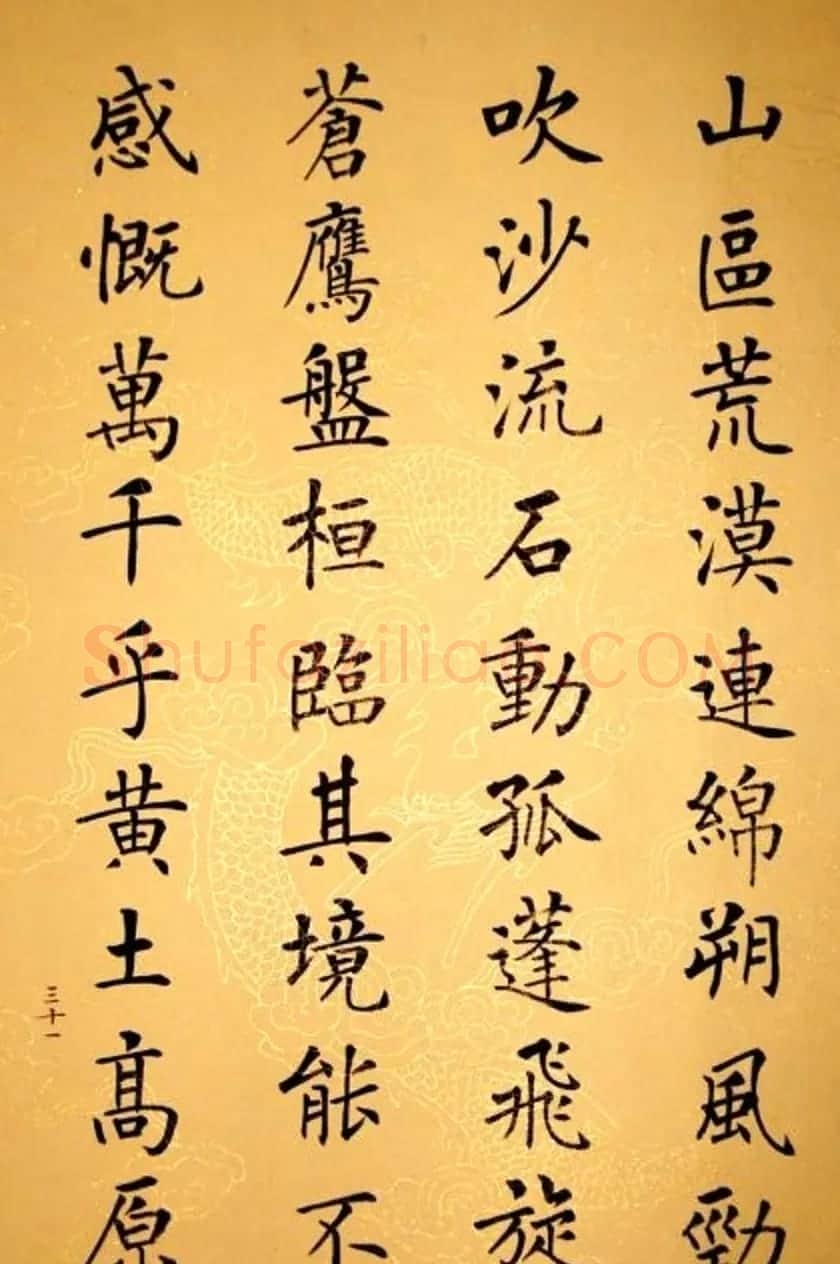 山區荒漠連綿朔風勁
吹沙流石動孤蓬飛旋
蒼鷹盤桓臨其境能不
感慨萬千乎黃土高原
三十一